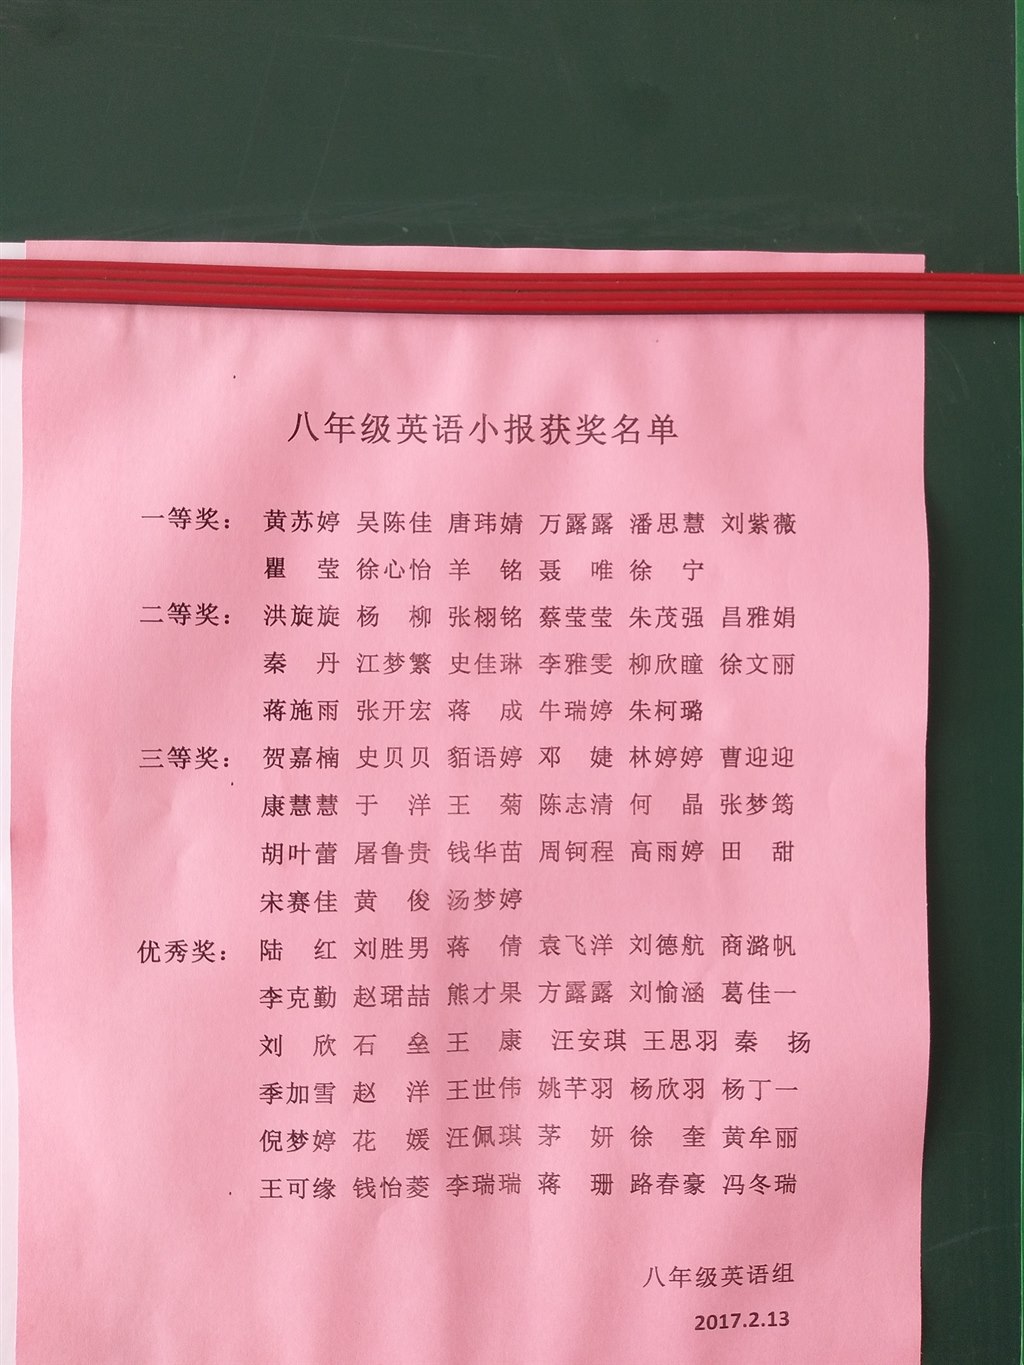 八年级英语小报获奖名单
一等奖： 黄苏婷 吴陈佳 唐玮婧 万露露 潘思慧 刘紫薇
瞿 莹 徐心怡 羊 铭 聂 唯 徐 宁
二等奖： 洪旋旋 杨 柳 张栩铭 蔡莹莹 朱茂强 昌雅娟
秦 丹 江梦繁 史佳琳 李雅雯 柳欣瞳 徐文丽
蒋施雨 张开宏 蒋 成 牛瑞婷 朱柯璐
三等奖： 贺嘉楠 史贝贝 貊语婷 邓 婕 林婷婷 曹迎迎
康慧慧 于 洋 王 菊 陈志清 何 晶 张梦筠
胡叶蕾 屠鲁贵 钱华苗 周钶程 高雨婷 田 甜
宋赛佳 黄 俊 汤梦婷
优秀奖： 陆 红 刘胜男 蒋 倩 袁飞洋 刘德航 商潞帆
李克勤 赵珺喆 熊才果 方露露 刘愉涵 葛佳一
刘 欣 石 垒 王 康 汪安琪 王思羽 秦 扬
季加雪 赵 洋 王世伟 姚芊羽 杨欣羽 杨丁一
倪梦婷 花 媛 汪佩琪 茅 妍 徐 奎 黄牟丽
王可缘 钱怡菱 李瑞瑞 蒋 珊 路春豪 冯冬瑞
八年级英语组
2017.2.13